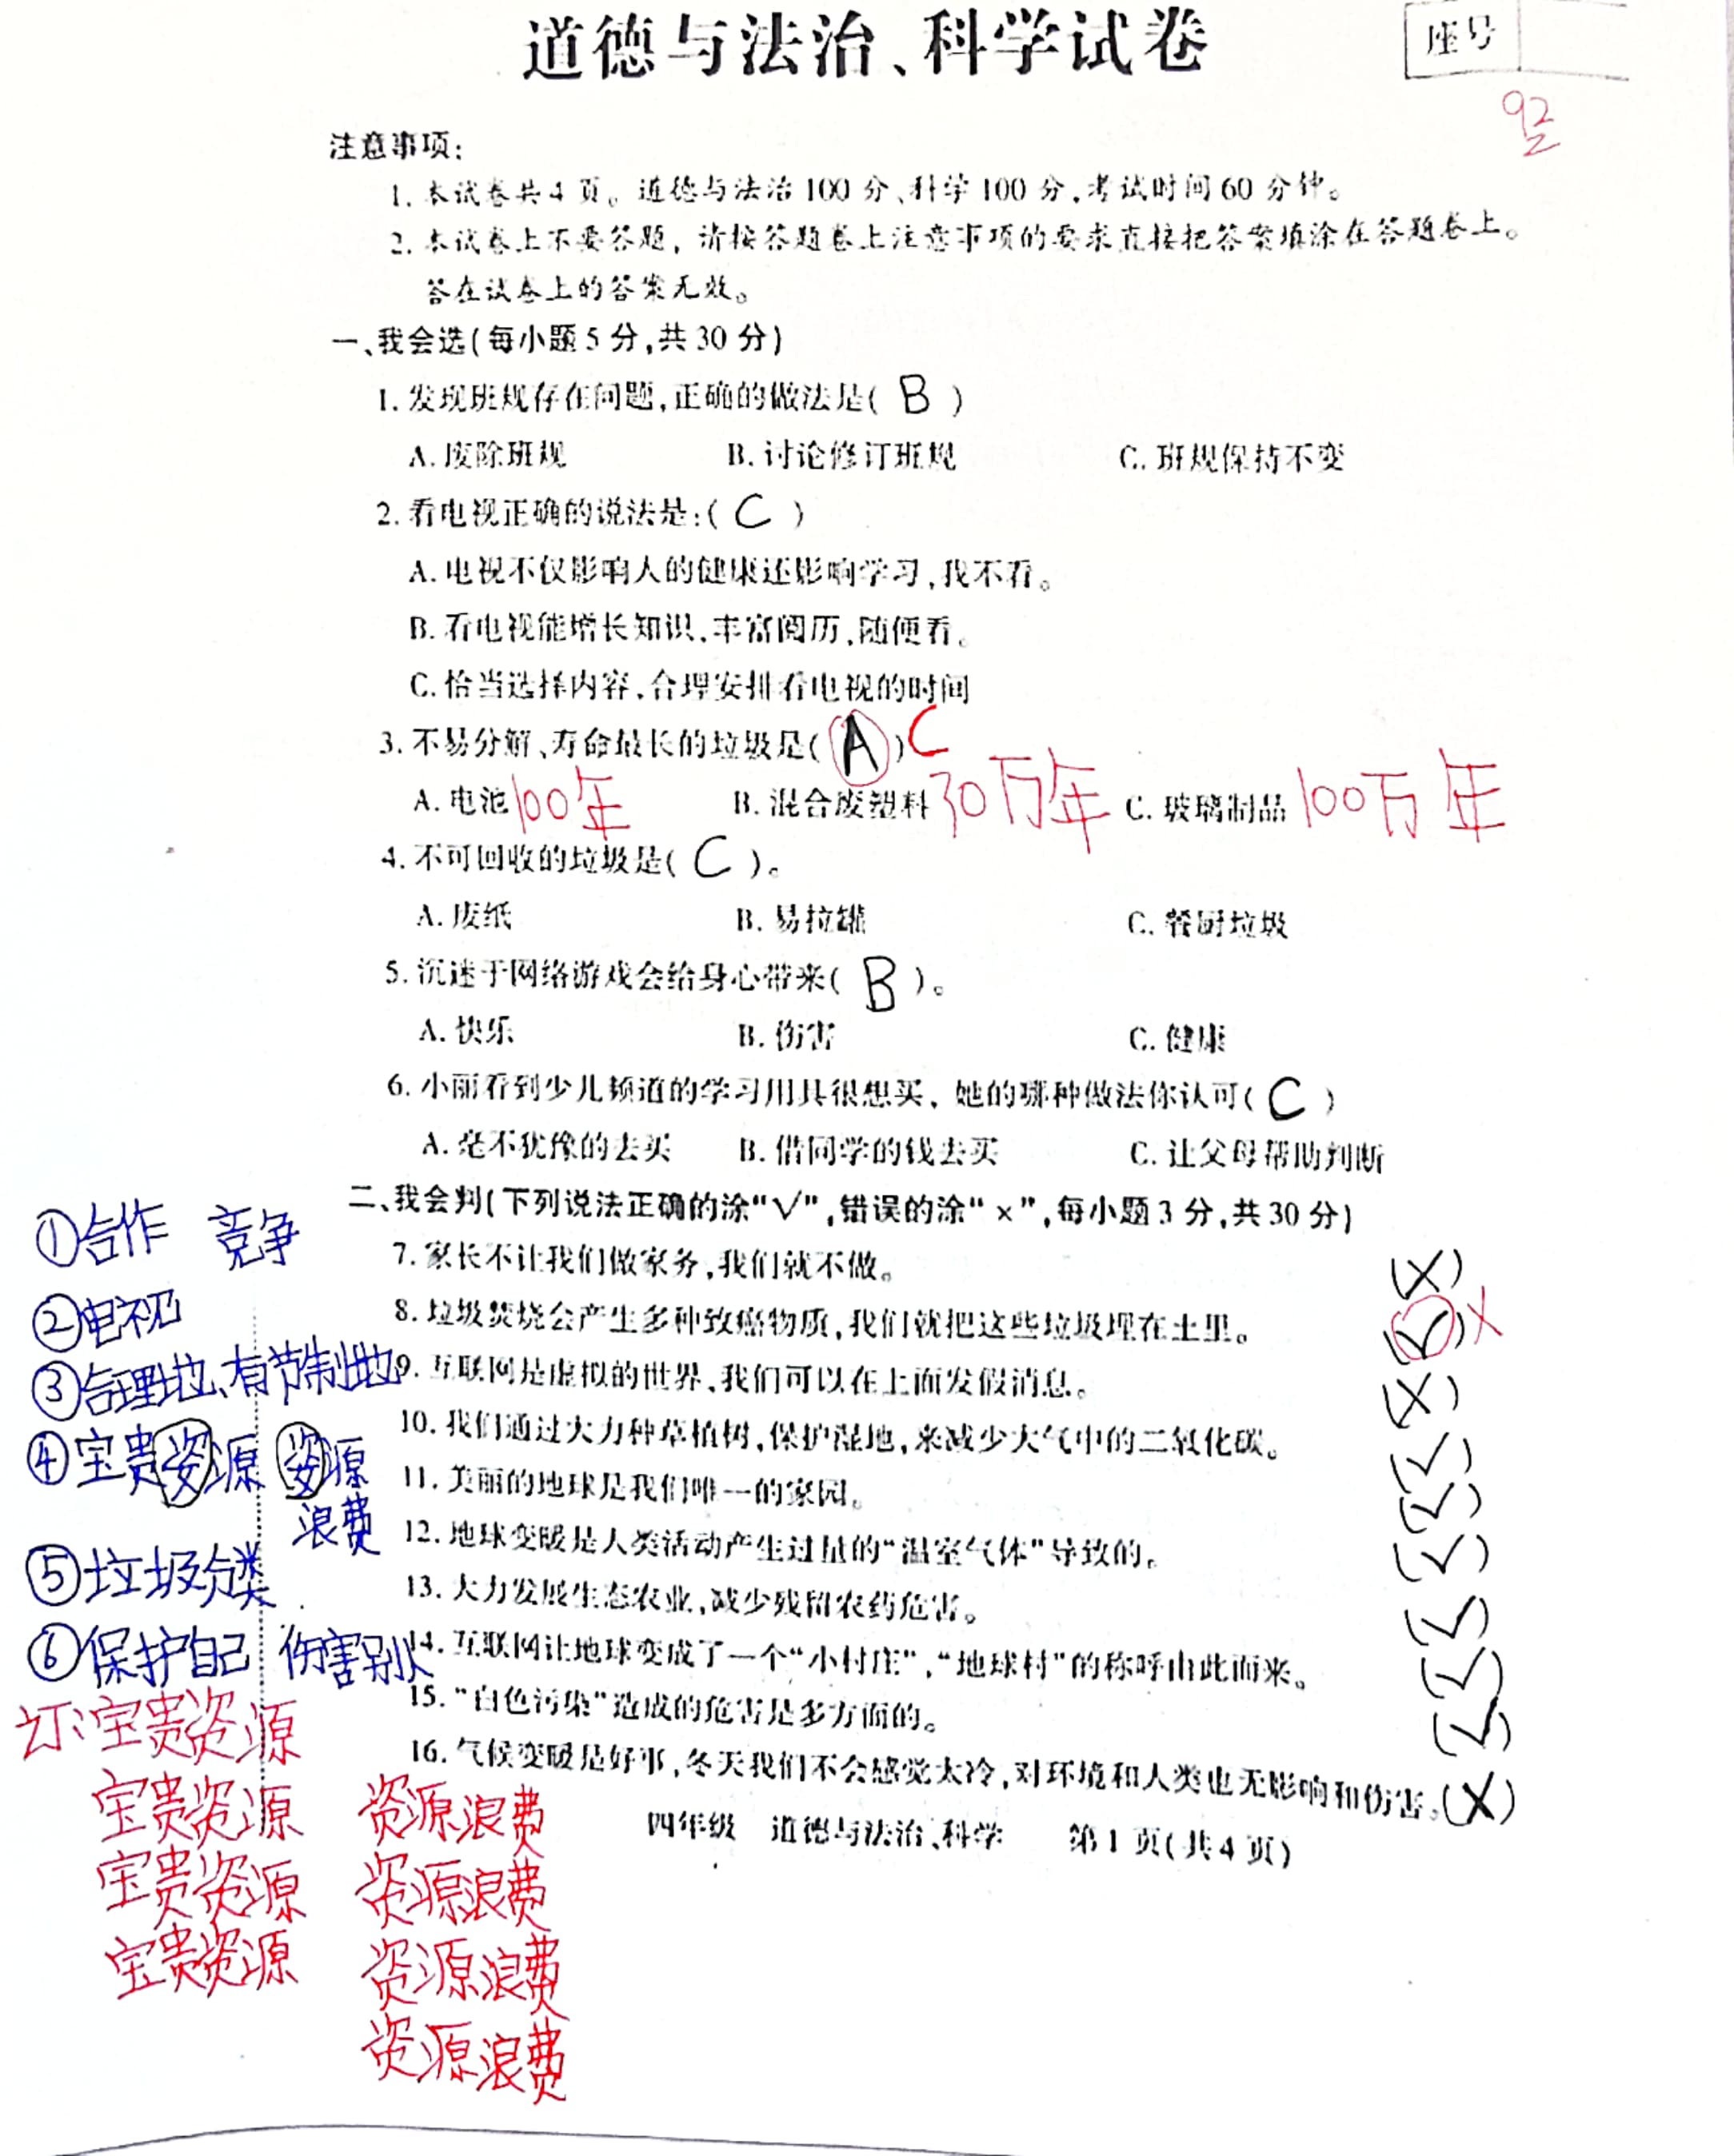 道德与法治、科学试卷
座号
92
注意事项:
1. 本试卷共4页。道德与法治100分、科学100分,考试时间60分钟。
2. 本试卷上不要答题,请按答题卷上注意事项的要求直接把答案填涂在答题卷上。
答在试卷上的答案无效。
一、我会选(每小题5分,共30分)
1. 发现班规存在问题,正确的做法是( B )
A. 废除班规 B. 讨论修订班规 C. 班规保持不变
2. 看电视正确的说法是:( C )
A. 电视不仅影响人的健康还影响学习,我不看。
B. 看电视能增长知识,丰富阅历,随便看。
C. 恰当选择内容,合理安排看电视的时间
3. 不易分解、寿命最长的垃圾是( A ) C
A. 电池 100年 B. 混合废塑料 30万年 C. 玻璃制品 100万年
4. 不可回收的垃圾是( C )。
A. 废纸 B. 易拉罐 C. 餐厨垃圾
5. 沉迷于网络游戏会给身心带来( B )。
A. 快乐 B. 伤害 C. 健康
6. 小丽看到少儿频道的学习用具很想买,她的哪种做法你认可( C )
A. 毫不犹豫的去买 B. 借同学的钱去买 C. 让父母帮助判断
二、我会判(下列说法正确的涂“√”,错误的涂“×”,每小题3分,共30分)
7. 家长不让我们做家务,我们就不做。 (×)
8. 垃圾焚烧会产生多种致癌物质,我们就把这些垃圾埋在土里。 (√) ×
9. 互联网是虚拟的世界,我们可以在上面发假消息。 (×)
10. 我们通过大力种草植树,保护湿地,来减少大气中的二氧化碳。 (√)
11. 美丽的地球是我们唯一的家园。 (√)
12. 地球变暖是人类活动产生过量的“温室气体”导致的。 (√)
13. 大力发展生态农业,减少残留农药危害。 (√)
14. 互联网让地球变成了一个“小村庄”,“地球村”的称呼由此而来。 (√)
15. “白色污染”造成的危害是多方面的。 (√)
16. 气候变暖是好事,冬天我们不会感觉太冷,对环境和人类也无影响和伤害。(×)
四年级 道德与法治、科学 第1页(共4页)
①合作 竞争
②电视
③合理地、有节制地
④宝贵资源 资源
浪费
⑤垃圾分类
⑥保护自己 伤害别人
订:宝贵资源
宝贵资源 资源浪费
宝贵资源 资源浪费
宝贵资源 资源浪费
资源浪费